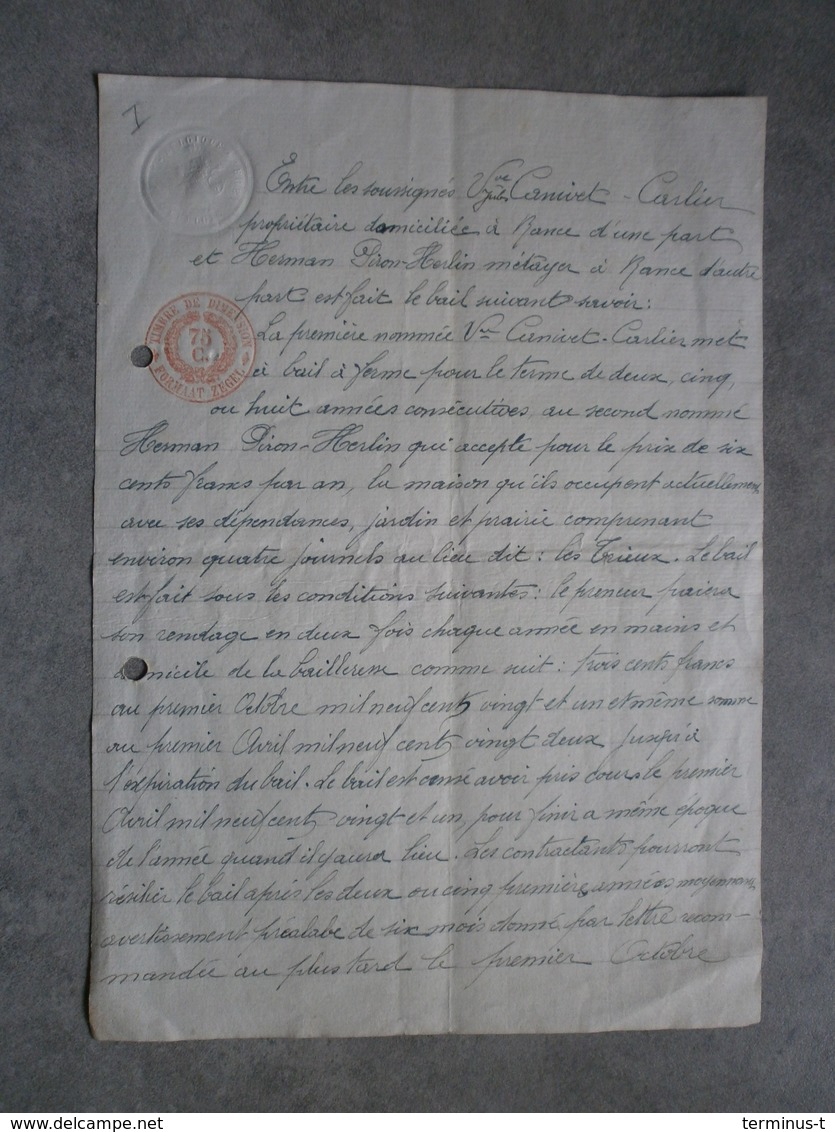 I
TIMBRE DE DIMENSION
75
C.
FORMAAT ZEGEL
Entre les soussignés Vve Jules Canivet - Carlier
propriétaire domiciliée à Rance d'une part
et Herman Piron-Herlin métayer à Rance d'autre
part est fait le bail suivant savoir:
La première nommée Vve Canivet-Carlier met
à bail à ferme pour le terme de deux, cinq,
ou huit années consécutives, au second nommé
Herman Piron-Herlin qui accepte pour le prix de six
cents francs par an, la maison qu'ils occupent actuellement
avec ses dépendances, jardin et prairie comprenant
environ quatre journels au lieu dit: les Trieux. Le bail
est fait sous les conditions suivantes: le preneur paiera
son rendage en deux fois chaque année en mains et
domicile de la bailleresse comme suit: trois cents francs
au premier Octobre mil neuf cent vingt et un et même somme
au premier Avril mil neuf cent vingt deux jusqu'à
l'expiration du bail. Le bail est censé avoir pris cours le premier
Avril mil neuf cent vingt et un, pour finir a même époque
de l'année quand il y aura lieu. Les contractants pourront
résilier le bail après les deux ou cinq premières années moyennant
avertissement préalabe de six mois donné par lettre recom-
mandée au plus tard le premier Octobre
DELCAMPE.NET
terminus-t